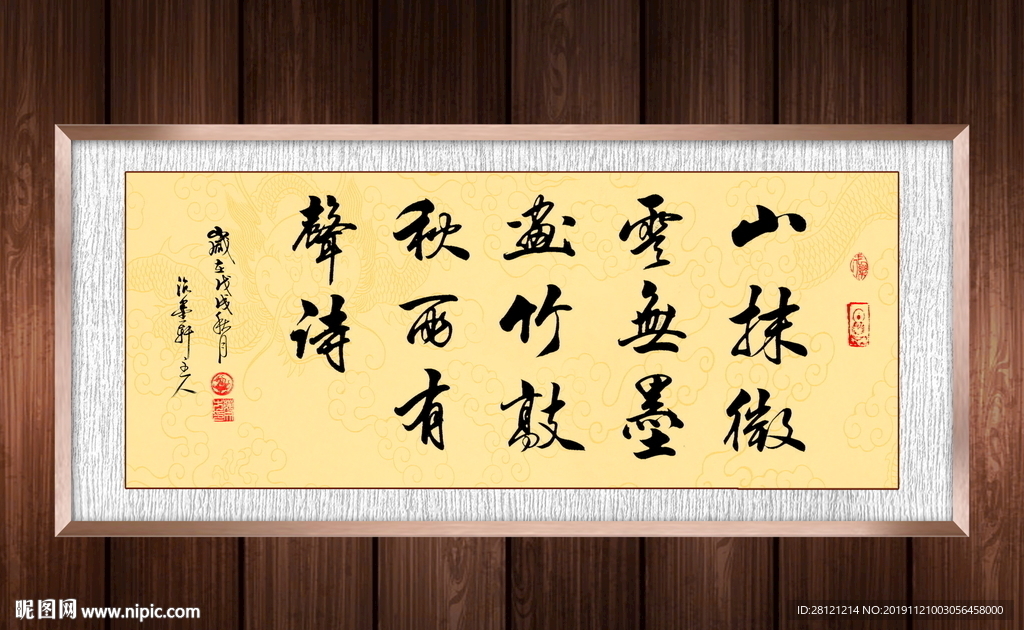 山抹微
雲無墨
畫竹敲
秋雨有
聲詩
歲在戊戌秋月
墨軒主人
昵图网 www.nipic.com
ID:28121214 NO:20191121003056458000